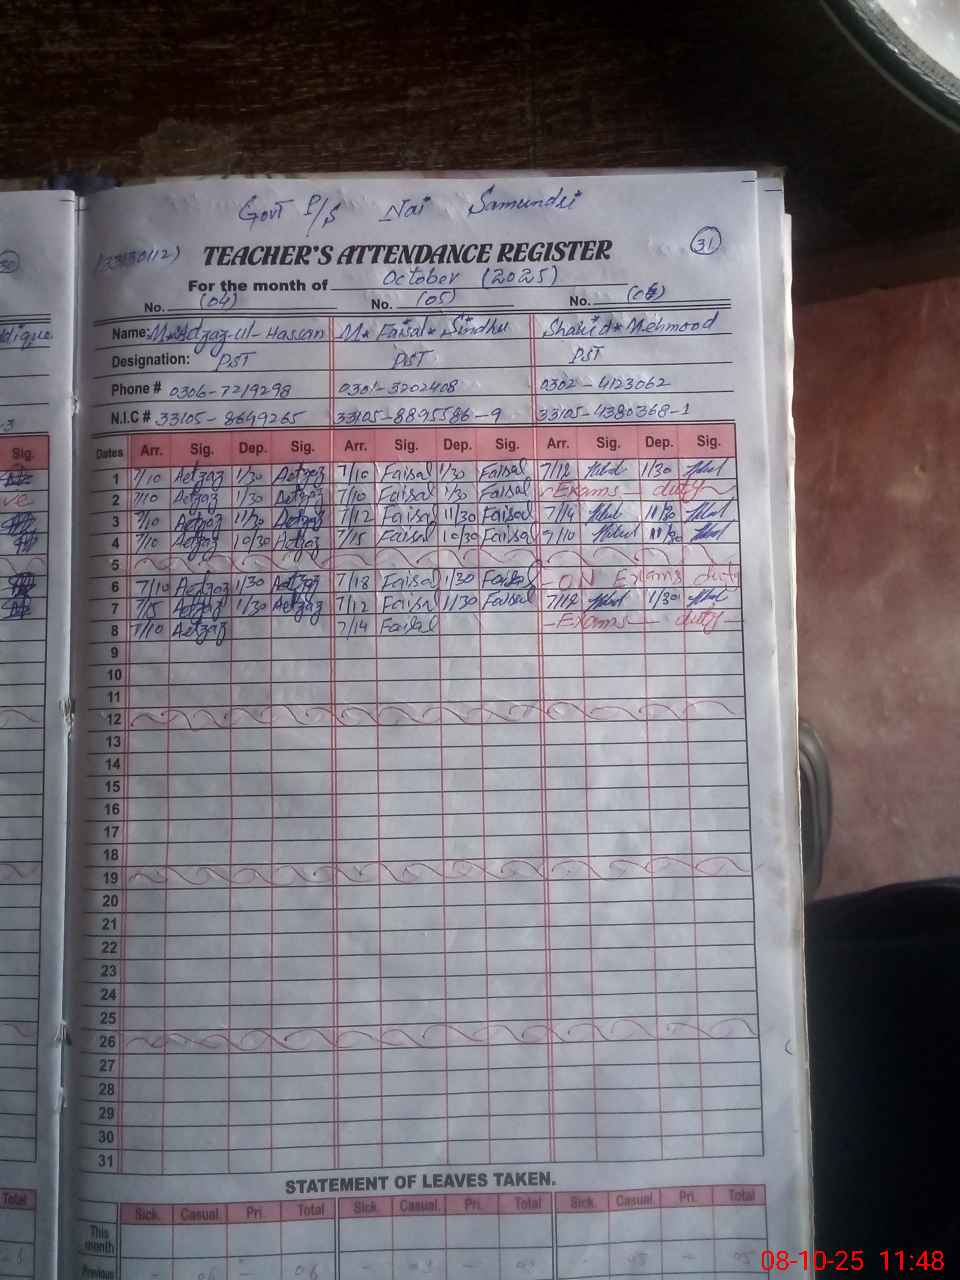 Govt P/S Nai Samundri
(33130112) TEACHER'S ATTENDANCE REGISTER 31
For the month of October (2025)
No. (04) No. (05) No.
Name: M. Aetzaz-ul-Hassan M. Faisal Sindhu Shahid Mehmood
Designation: PST PST PST
Phone # 0306-7219298 0301-3202408 0302-4123062
N.I.C # 33105-8649265 33105-8895586-9 33105-4380368-1
Sig. Dates Arr. Sig. Dep. Sig. Arr. Sig. Dep. Sig. Arr. Sig. Dep. Sig.
1 7/10 Aetzaz 1/30 Aetzaz 7/10 Faisal 1/30 Faisal 7/12 1/30
2 7/10 Aetzaz 1/30 Aetzaz 7/10 Faisal 1/30 Faisal - Exams - duty
3 7/10 Aetzaz 11/30 Aetzaz 7/12 Faisal 11/30 Faisal 7/14 11/30
4 7/10 Aetzaz 10/30 Aetzaz 7/15 Faisal 10/30 Faisal 7/10
5
6 7/10 Aetzaz 1/30 Aetzaz 7/18 Faisal 1/30 Faisal - ON Exams duty
7 7/15 Aetzaz 1/30 Aetzaz 7/12 Faisal 1/30 Faisal 7/12 1/30
8 7/10 Aetzaz 7/14 Faisal - Exams - duty -
9
10
11
12
13
14
15
16
17
18
19
20
21
22
23
24
25
26
27
28
29
30
31
STATEMENT OF LEAVES TAKEN.
Total Sick. Casual. Pri. Total Sick. Casual. Pri. Total Sick. Casual. Pri. Total
This month
Previous
08-10-25 11:48